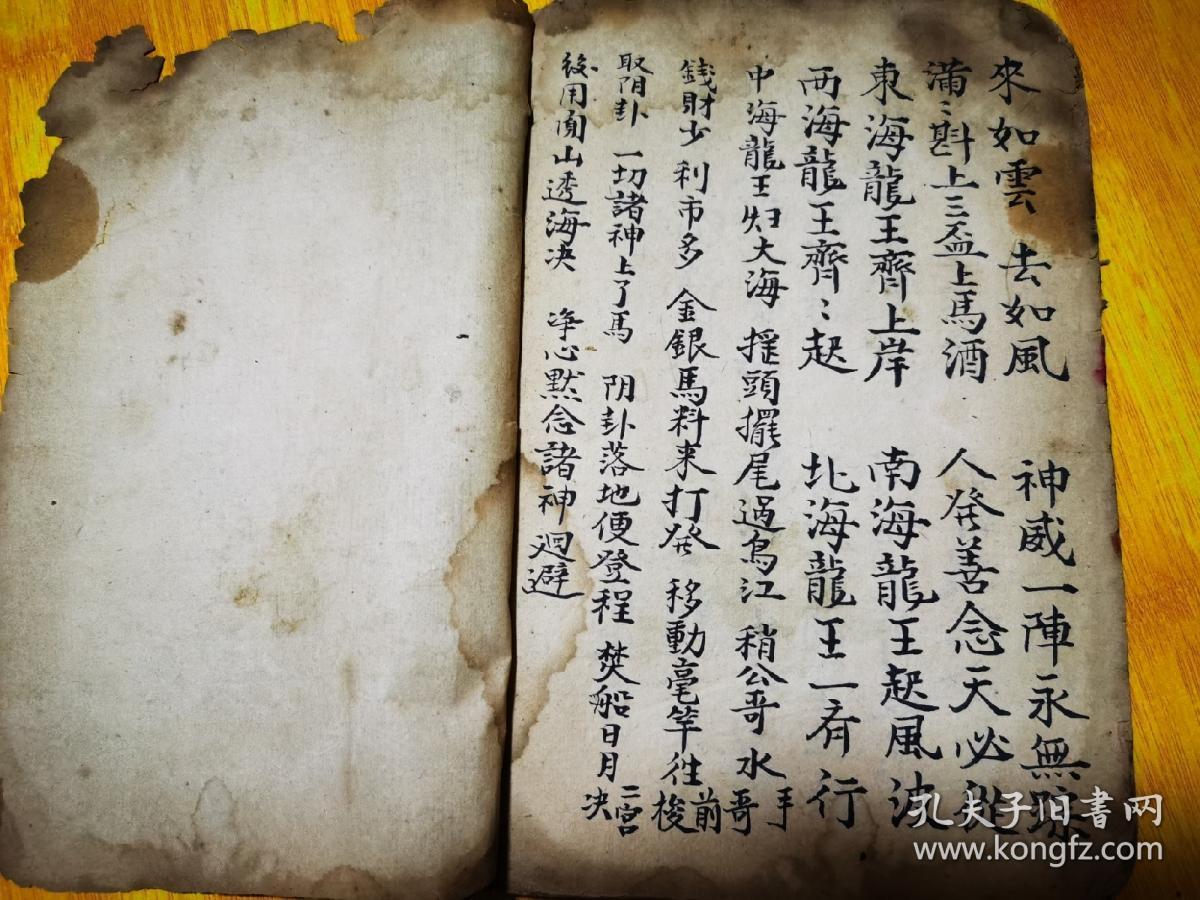 來如雲 去如風 神威一陣永無踪
滿〻斟上三盃上馬酒 人發善念天必從
東海龍王齊上岸 南海龍王起風波
西海龍王齊〻起 北海龍王一齐行
中海龍王归大海 摇頭擺尾過烏江 稍公哥水手哥
錢財少利市多 金銀馬料来打發 移動毫竿往前梭
取阴卦 一切諸神上了馬 阴卦落地便登程 焚船日月二宫决
後用闾山透海决 净心默念諸神廻避
孔夫子旧书网
www.kongfz.com